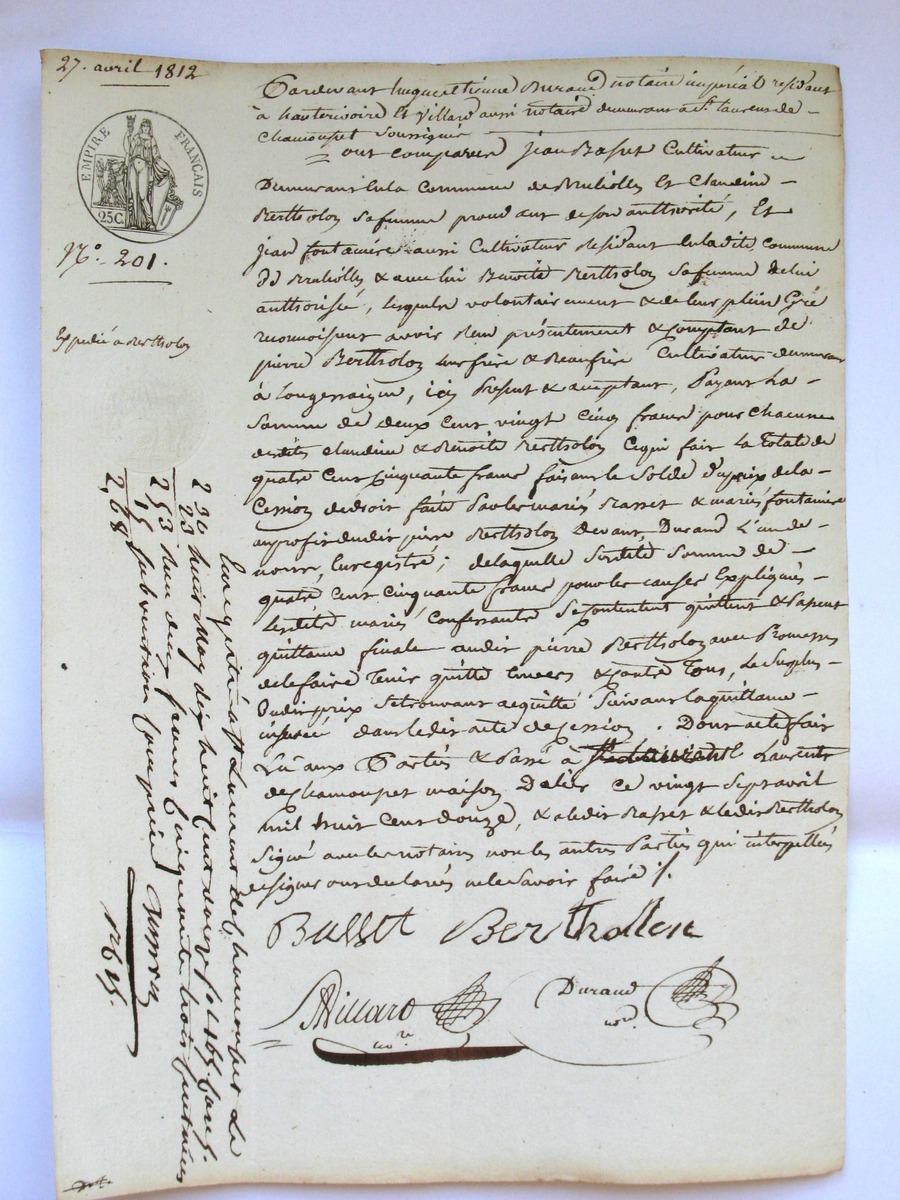 27. avril 1812
EMPIRE FRANÇAIS
25C.
N.° 201.
Expédié a Bertholon
Pardevant hugue etienne Durand notaire impérial residant
à hauterivoire Et Villard aussi notaire demeurant a St. Laurens de
Chamousset Soussignés
= ont comparu jean Basset Cultivateur
Demeurant En la Commune de Et Claudine
Bertholon Sa femme procedant de son authorité, Et
jean fontaniere aussi Cultivateur résidant En la dite commune
de & avec lui Benoite Bertholon Sa femme de lui
authorisée, lesquels volontairement & de leur plein Gré
reconnoissent avoir Reçu présentement & Comptant de
pierre Bertholon leur frère & Beaufrère Cultivateur demeurant
à Longessaigne, icy Présent & acceptant, Payant La
Somme de deux Cent vingt Cinq francs pour chacune
desdites claudine & Benoite Bertholon Ce qui fait La totale de
quatre Cent Cinquante francs faisant le Solde du prix de la
Cession de droit faite Par les mariés Basset & mariés fontaniere
au profit dudit pierre Bertholon Devant, Durand L'un de
nous, Enregistré; de laquelle Susdite Somme de
quatre Cent Cinquante francs pour les causes Expliquées
Lesdits mariés Confessants Se Contentent quittent & Passent
quittance finale audit pierre Bertholon avec Promesses
de le faire tenir quitte Envers & Contre tous, Le Surplus
Dudit prix Se trouvant acquitté Suivant la quittance
insérée dans le dit acte de Cession. Dont acte fait
Lu aux Parties & Passé à St Laurent
de Chamousset maison Ce vingt Sept avril
mil huit Cent douze, & a ledit Basset & ledit Bertholon
Signé avec les notaires non les autres Parties qui interpellés
de signer ont déclarés ne le Savoir faire /.
Basset Bertholon
Villard
no.re
Durand
no.re
Enregistré a St Laurent de Chamousset le
huit May dix huit Cent douze f.o
deux francs Cinquante trois Centimes
Subvention Comprise
2 30
23
2 53
15
2,68